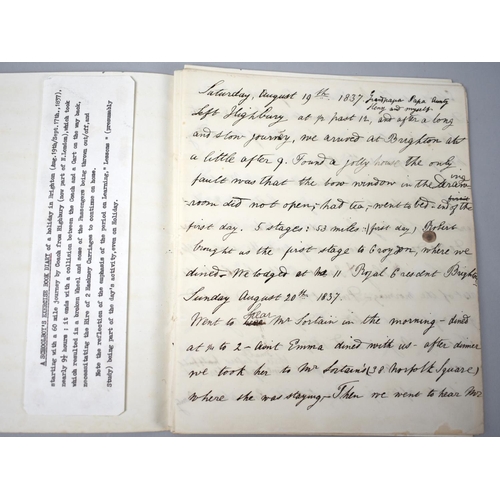 A SCHOOLBOY'S EXERCISE BOOK DIARY of a holiday in Brighton (Aug.19th/Sept.17th.,1837),
starting with a 60 mile journey by Coach from Highbury (now part of N.London), which took
nearly 9½ hours : it ends with a collision between the Coach and a Cart on the way back,
which resulted in a broken wheel and some of the Passengers being thrown out/off, and
necessitating the Hire of 2 Hackney Carriages to continue on home.
Note the reflection of the emphasis of the period on Learning, " Lessons " (presumably
Study) being part of the day's activity, even on Holiday.
Saturday, August 19th 1837. Grandpapa Papa Aunty
and myself
left Highbury at ½ past 12, and after a long
and slow journey, we arrived at Brighton at
a little after 9. Found a jolly house the only
fault was that the bow window in the drawing
room did not open; had tea, went to bed - end of the
first day. 5 stages: 53 miles: (first day;)
bought as the first stage to Croydon, where we
dined. We lodged at 11 Royal Crescent Brighton
Sunday August 20th 1837.
Went to hear Mr Sortain in the morning - dined
at ¼ to 2 - Aunt Emma dined with us - after dinner
we took her to Mr Sortain's (38 Norfolk Square)
where she was staying. - Then we went to hear Mr